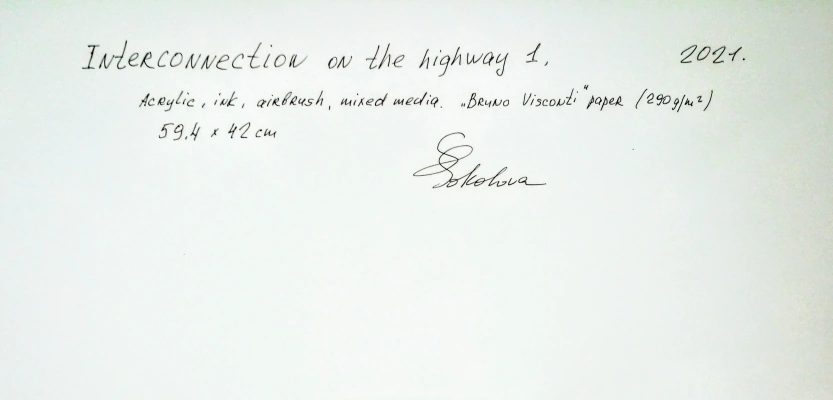 Interconnection on the highway 1. 2021.
Acrylic, ink, airbrush, mixed media. „Bruno Visconti" paper (290g/m²)
59.4 x 42 cm
Sokolova